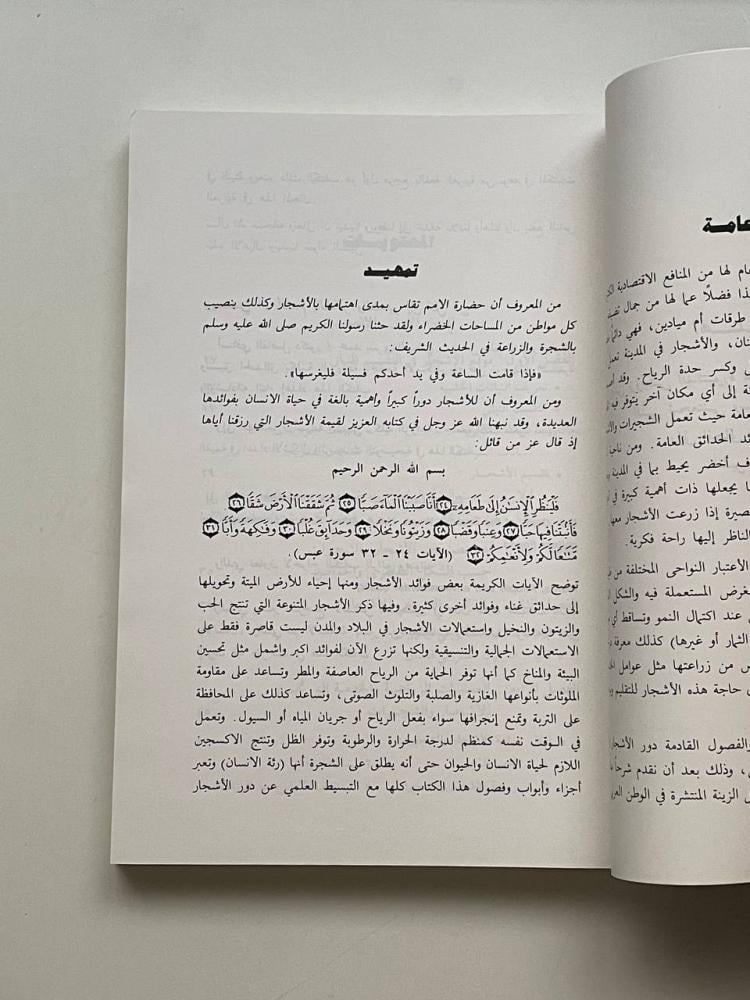 تمهيد
من المعروف أن حضارة الامم تقاس بمدى اهتمامها بالأشجار وكذلك بنصيب
كل مواطن من المساحات الخضراء ولقد حثنا رسولنا الكريم صلى الله عليه وسلم
بالشجرة والزراعة في الحديث الشريف:
«فإذا قامت الساعة وفي يد أحدكم فسيلة فليغرسها».
ومن المعروف أن للأشجار دوراً كبيراً وأهمية بالغة في حياة الانسان بفوائدها
العديدة، وقد نبهنا الله عز وجل في كتابه العزيز لقيمة الأشجار التي رزقنا أياها
إذ قال عز من قائل:
بسم الله الرحمن الرحيم
فَلْيَنظُرِ ٱلْإِنسَٰنُ إِلَىٰ طَعَامِهِۦٓ ٢٤ أَنَّا صَبَبْنَا ٱلْمَآءَ صَبًّا ٢٥ ثُمَّ شَقَقْنَا ٱلْأَرْضَ شَقًّا ٢٦
فَأَنۢبَتْنَا فِيهَا حَبًّا ٢٧ وَعِنَبًا وَقَضْبًا ٢٨ وَزَيْتُونًا وَنَخْلًا ٢٩ وَحَدَآئِقَ غُلْبًا ٣٠ وَفَٰكِهَةً وَأَبًّا ٣١
مَّتَٰعًا لَّكُمْ وَلِأَنْعَٰمِكُمْ ٣٢ (الآيات ٢٤ - ٣٢ سورة عبس).
توضح الآيات الكريمة بعض فوائد الأشجار ومنها إحياء للأرض الميتة وتحويلها
إلى حدائق غناء وفوائد أخرى كثيرة. وفيها ذكر الأشجار المتنوعة التي تنتج الحب
والزيتون والنخيل واستعمالات الأشجار في البلاد والمدن ليست قاصرة فقط على
الاستعمالات الجمالية والتنسيقية ولكنها تزرع الآن لفوائد اكبر واشمل مثل تحسين
البيئة والمناخ كما أنها توفر الحماية من الرياح العاصفة والمطر وتساعد على مقاومة
الملوثات بأنواعها الغازية والصلبة والتلوث الصوتى، وتساعد كذلك على المحافظة
على التربة وتمنع إنجرافها سواء بفعل الرياح أو جريان المياه أو السيول. وتعمل
في الوقت نفسه كمنظم لدرجة الحرارة والرطوبة وتوفر الظل وتنتج الاكسجين
اللازم لحياة الانسان والحيوان حتى أنه يطلق على الشجرة أنها (رئة الانسان) وتعبر
أجزاء وأبواب وفصول هذا الكتاب كلها مع التبسيط العلمي عن دور الأشجار
عامة
لها من المنافع الاقتصادية
فضلاً عما لها من جمال
طرقات أم ميادين، فهي
والأشجار في المدينة
وكسر حدة الرياح. وقد
إلى أي مكان آخر يتوفر فيه
حيث تعمل الشجيرات
الحدائق العامة. ومن
أخضر يحيط بما في المدينة
يجعلها ذات أهمية كبيرة في
إذا زرعت الأشجار
الناظر إليها راحة فكرية.
الأعتبار النواحي المختلفة من
المستعملة فيه والشكل
عند اكتمال النمو وتساقط
الثمار أو غيرها) كذلك معرفة
من زراعتها مثل عوامل
حاجة هذه الأشجار للتقليم
والفصول القادمة دور
وذلك بعد أن نقدم شرحاً
الزينة المنتشرة في الوطن